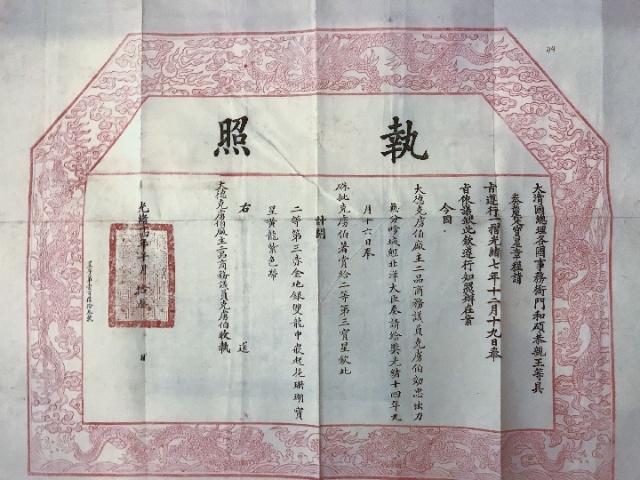 執照
大清國總理各國事務衙門和碩恭親王等具
奏定寶星章程請
旨遵行一摺光緒七年十二月十九日奉
旨依議欽此欽遵行知照辦在案
今因
大德克虜伯廠主二品商務議員克虜伯効忠出力
無分畛域經北洋大臣奏請給獎光緒十四年九
月十六日奉
硃批克虜伯著賞給二等第三寶星欽此
計開
二等第三赤金地銀雙龍中嵌起花珊瑚寶
星黃龍紫色帶
右 送
大德克虜伯廠主二品商務議員克虜伯收執
光緒十四年十月 拾 日